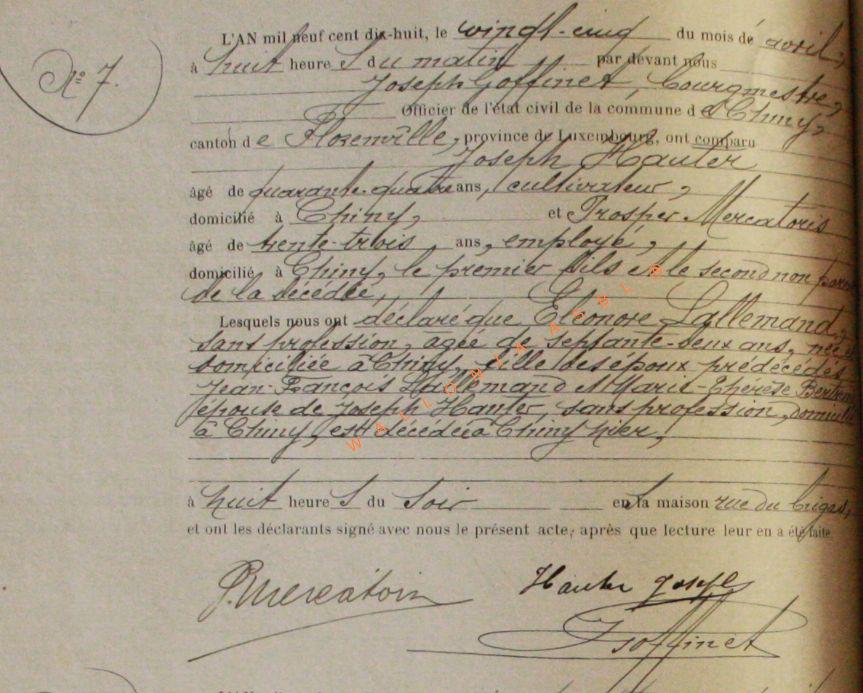 N° 7.
L'AN mil neuf cent dix-huit, le vingt-cinq du mois de avril,
à huit heure s du matin par devant nous
Joseph Goffinet, Bourgmestre,
Officier de l'état civil de la commune d e Chiny,
canton d e Florenville, province de Luxembourg, ont comparu
Joseph Hauter
âgé de quarante-quatre ans, cultivateur,
domicilié à Chiny, et Prosper Mercatoris
âgé de trente-trois ans, employé,
domicilié à Chiny, le premier fils et le second non parent
de la décédée,
Lesquels nous ont déclaré que Eléonore Lallemand,
sans profession, agée de septante-deux ans, née et
domiciliée à Chiny, fille des époux prédécédés
Jean-François Lallemand & Marie-Thérèse
épouse de Joseph Hauter, sans profession, domicilié
à Chiny, est décédée à Chiny hier,
à huit heure s du soir en la maison rue du
et ont les déclarants signé avec nous le présent acte, après que lecture leur en a été faite.
P. Mercatoris
Hauter Joseph
J Goffinet
WALLONIA ASBL